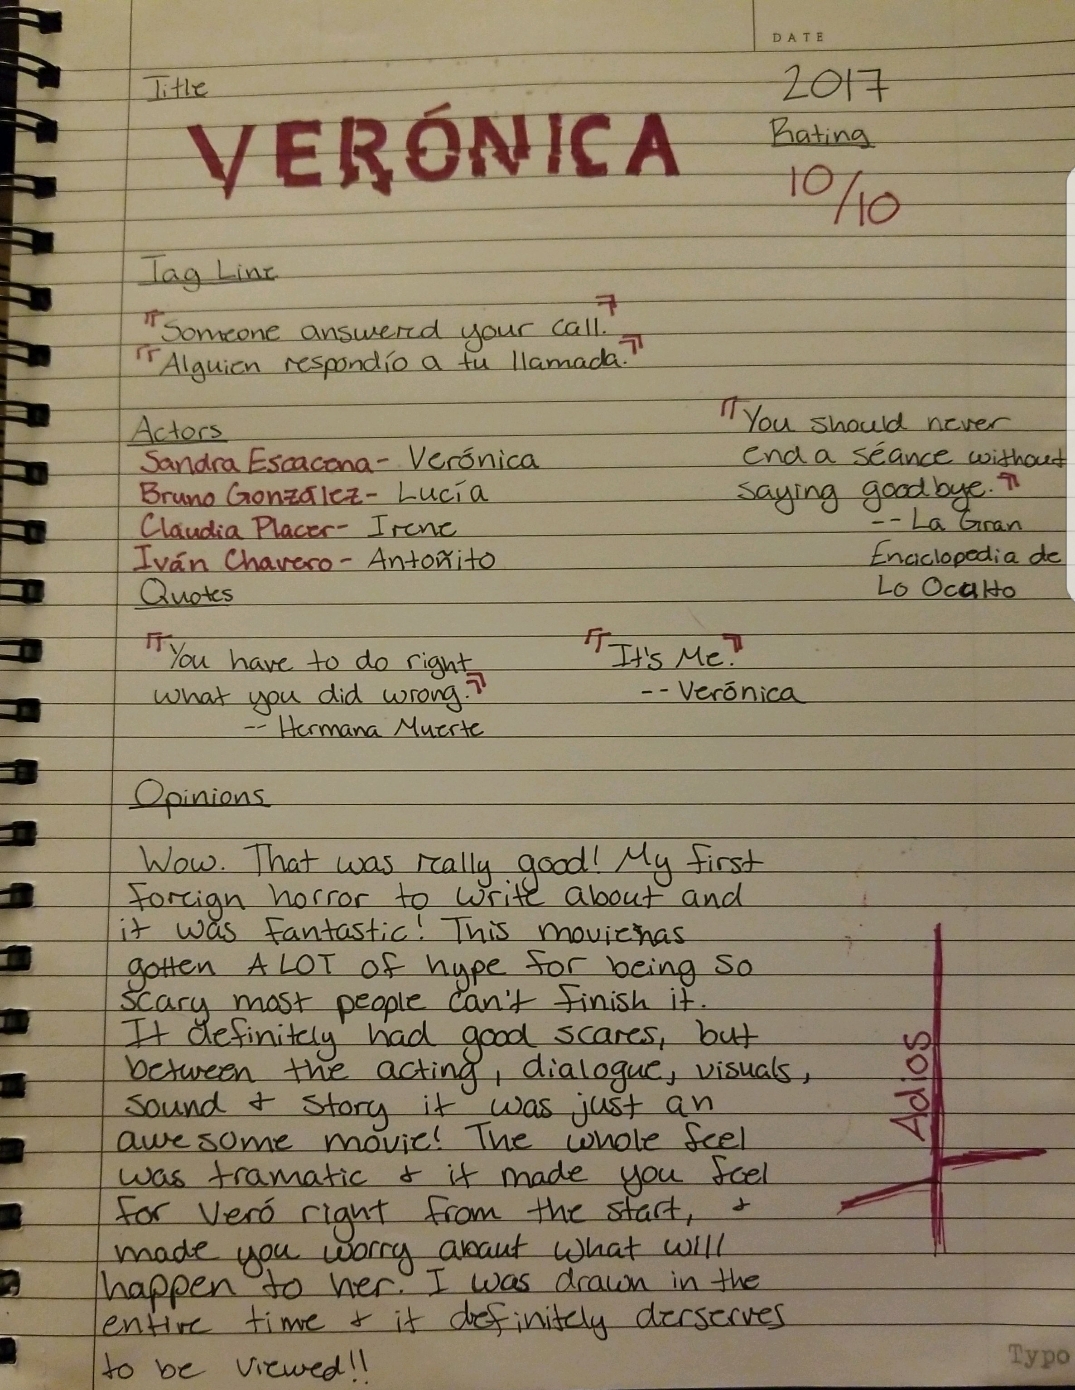 DATE
Title
2017
VERÓNICA
Rating
10/10
Tag Line
"Someone answered your call."
"Alguien respondío a tu llamada."
Actors
Sandra Escacena- Verónica
Bruno González- Lucía
Claudia Placer- Irene
Iván Chavero- Antoñito
"You should never
end a séance without
saying goodbye."
-- La Gran
Enciclopedia de
Lo Oculto
Quotes
"You have to do right
what you did wrong."
-- Hermana Muerte
"It's Me."
-- Verónica
Opinions
Wow. That was really good! My first
foreign horror to write about and
it was fantastic! This movie has
gotten A LOT of hype for being so
scary most people can't finish it.
It definitely had good scares, but
between the acting, dialogue, visuals,
sound & story it was just an
awesome movie! The whole feel
was tramatic & it made you feel
for Veró right from the start, &
made you worry about what will
happen to her. I was drawn in the
entire time & it definitely derserves
to be viewed!!
Adios
Typo